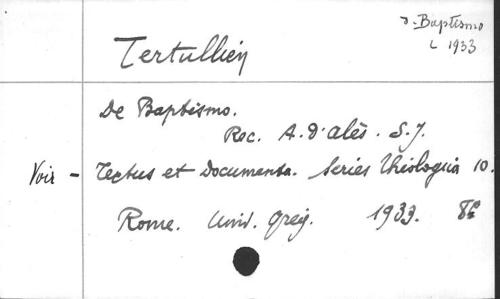 d. Baptismo
L 1933
Tertullien
De Baptismo.
Rec. A. d'alès. S.J.
Voir - Textus et Documenta. Series theologica 10.
Rome. Univ. Greg. 1933. 8º